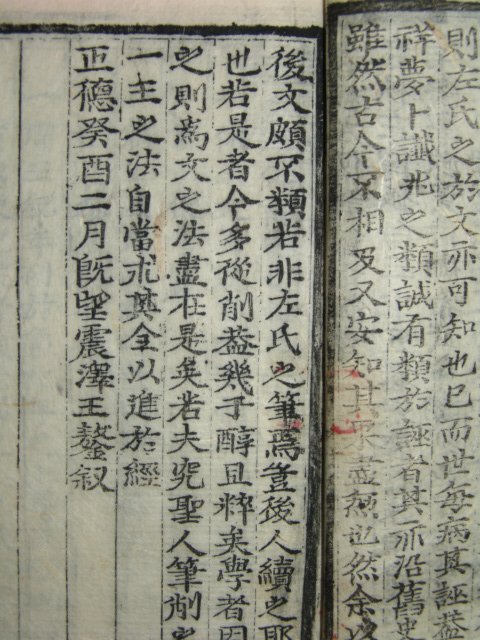 則左氏之於文亦可知也已而世每病其誣蓋
祥夢卜讖兆之類誠有類於誣者其亦沿舊史
雖然古今不相及又安知其果盡誣也然余
後文頗不類若非左氏之筆焉豈後人續之耶
也若是者今多從削蓋幾于醇且粹矣學者因
之則為文之法盡在是矣若夫究聖人筆削之
一主之法自當求其全以進於經
正德癸酉二月既望震澤王鏊叙